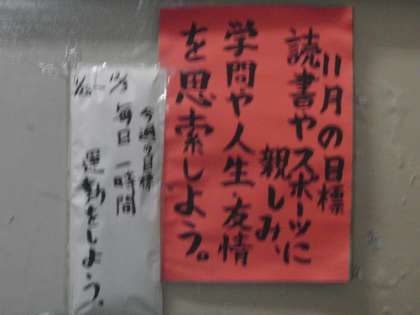 11月の目標
読書やスポーツに
親しみ、
学問や人生・友情
を思索しよう。
今週の目標
毎日一時間
運動をしよう。